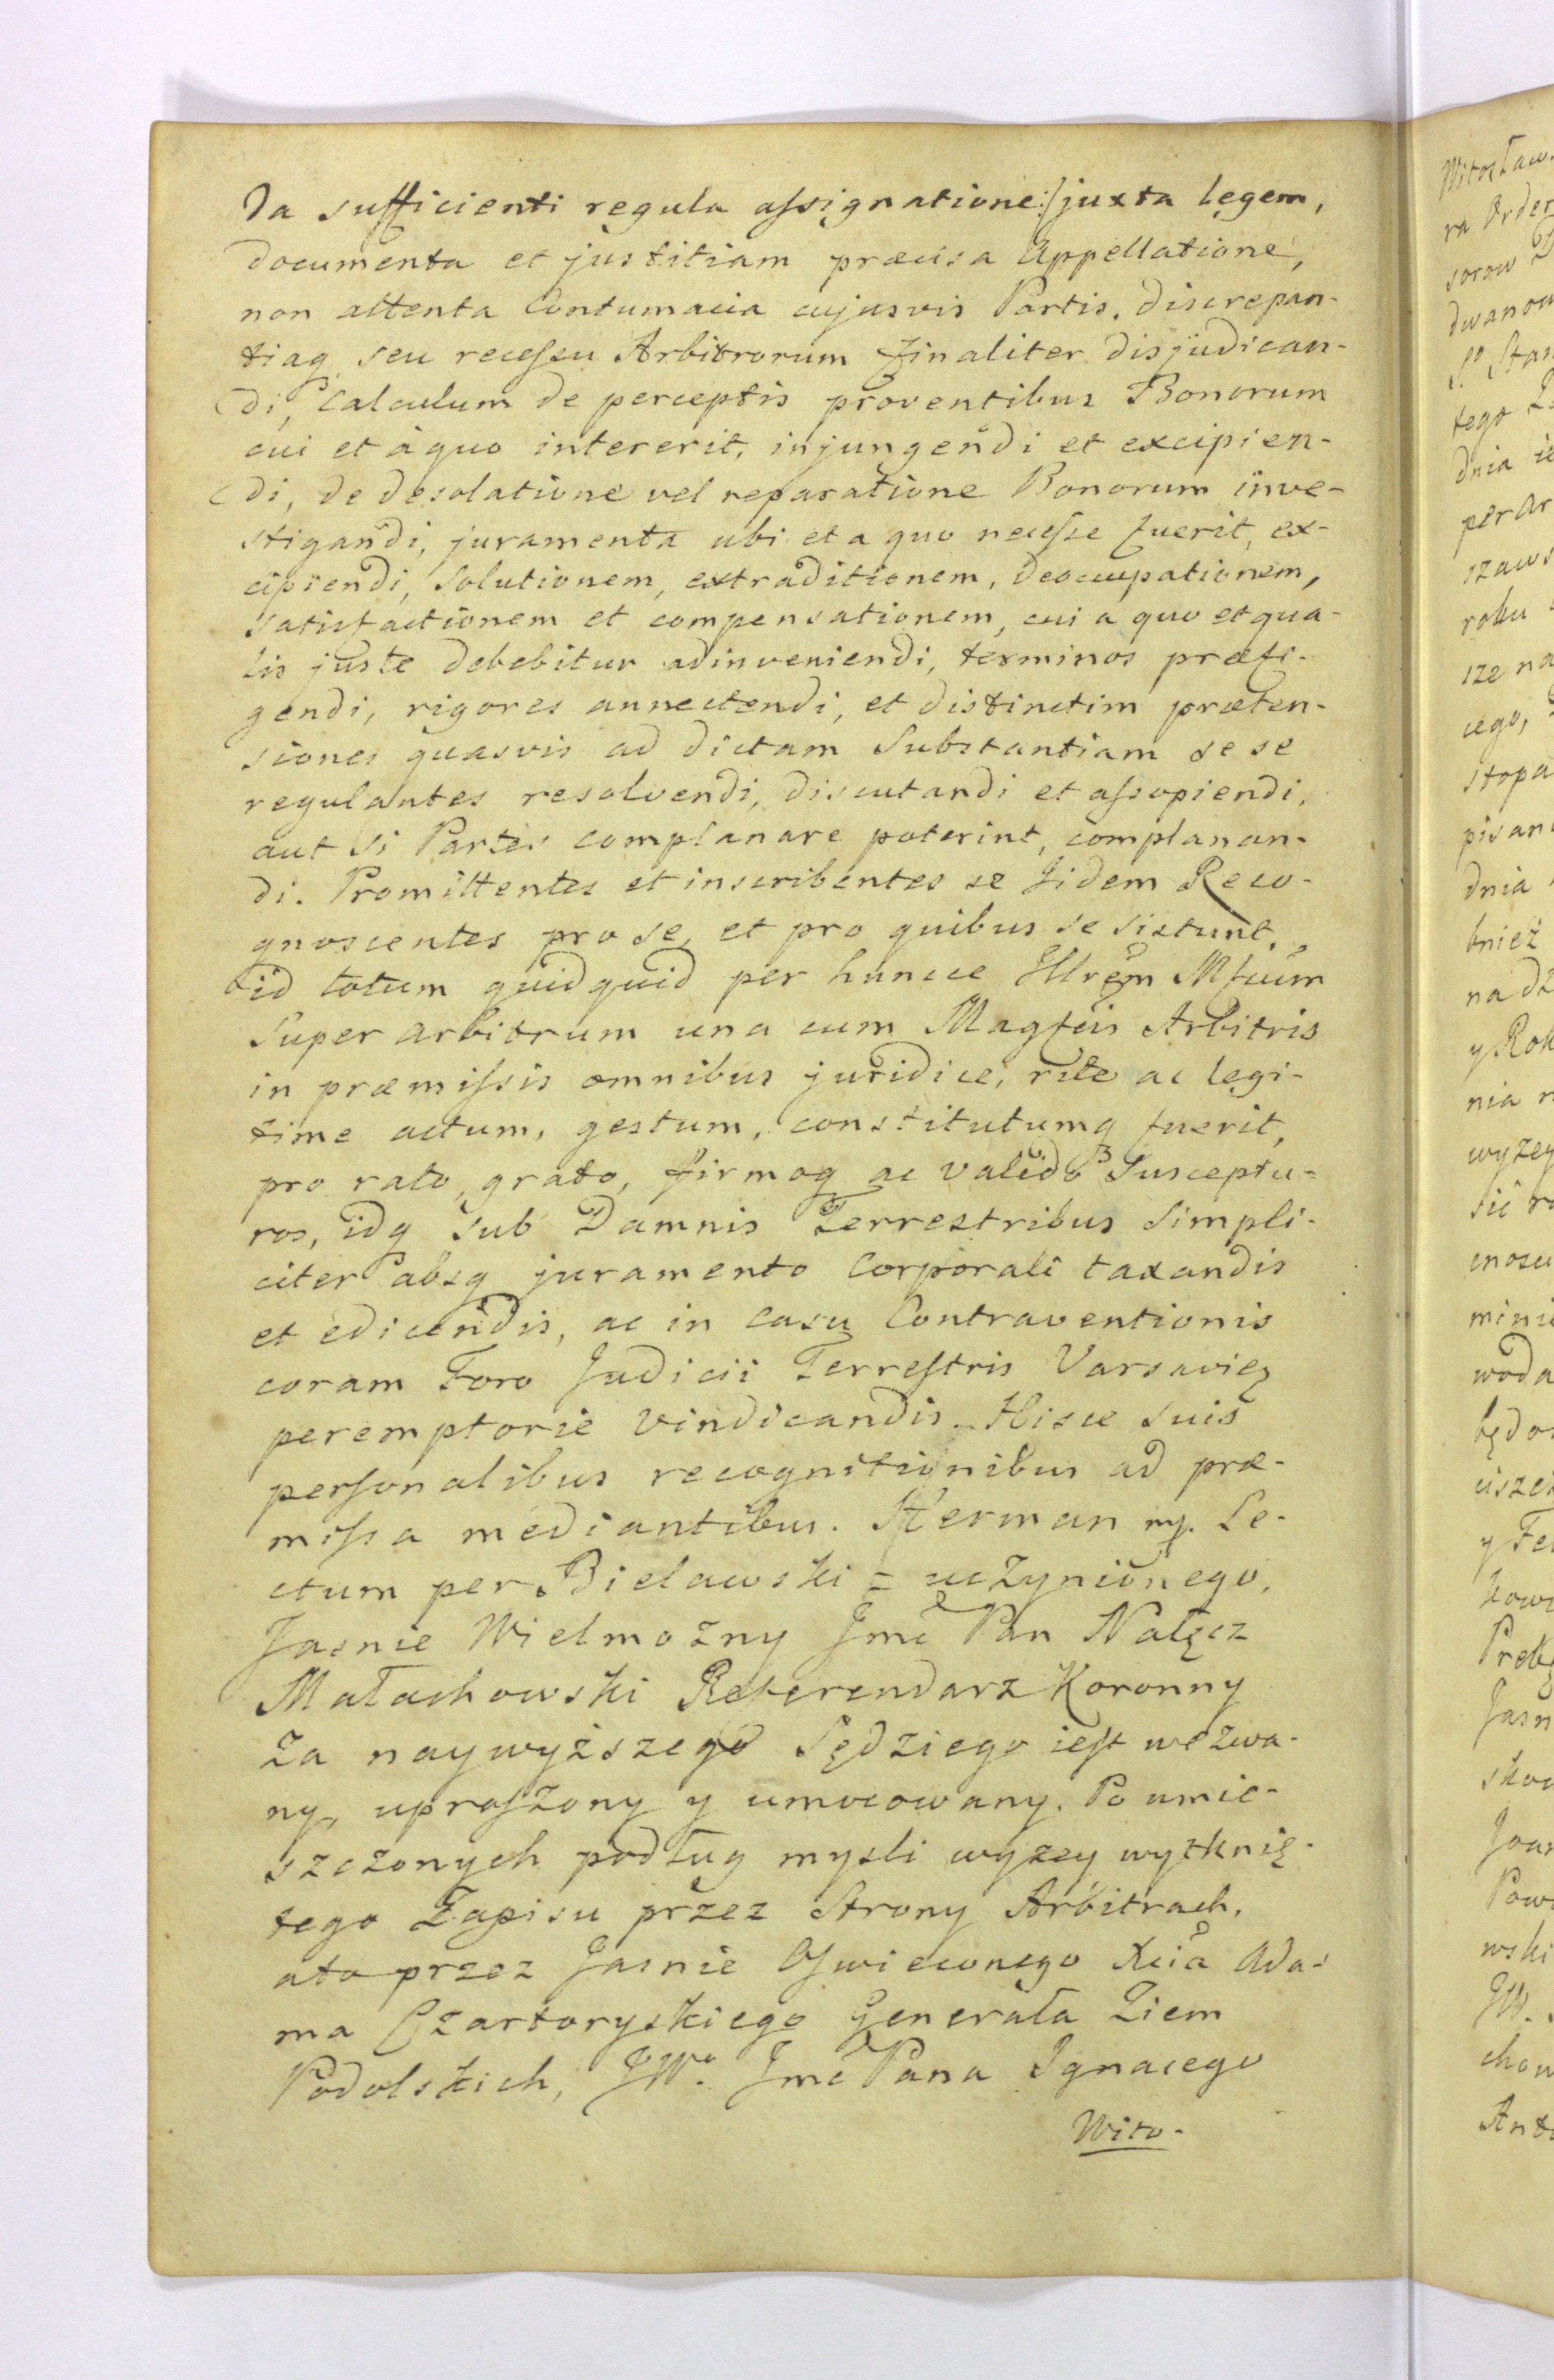 da sufficienti regula assignatione:/juxta legem,
documenta et justitiam præcisa Appellatione,
non attenta Contumacia cujusvis Partis, discrepan-
tiaq seu recessu Arbitrorum finaliter disjudican-
di, Calculum de perceptis proventibus Bonorum
cui et à quo intererit, injungendi et excipien-
di, de desolatione vel reparatione Bonorum inve-
stigandi, juramenta ubi et a quo necesse fuerit, ex-
cipiendi, Solutionem, extraditionem, deoccupationem,
satisfactionem et compensationem, cui a quo et qua-
lis juste debebitur adinveniendi, terminos præfi-
gendi, rigores annectendi, et distinctim præten-
siones quasvis ad dictam Substantiam se se
regulantes resolvendi, discutandi et assopiendi,
aut si Partes complanare poterint, complanan-
di. Promittentes et inscribentes se Iidem Reco-
gnoscentes pro se, et pro quibus se sistunt,
id totum quidquid per huncce Illrem Mfcum
Super arbitrum una cum Magfcis Arbitris
in præmissis omnibus juridice, rite ac legi-
time actum, gestum, constitutumq fuerit,
pro rato, grato, firmoq ac valido Susceptu-
ros, idq sub Damnis Terrestribus Simpli-
citer absq juramento Corporali taxandis
et edicendis, ac in casu Contraventionis
coram Foro Judicii Terrestris Varsavię
peremptorie vindicandis. Hisce suis
personalibus recognitionibus ad præ-
missa mediantibus. Herman mp. Le-
ctum per Bielawski = uczynionego,
Jasnie Wielmożny Jmć Pan Nałęcz
Małachowski Referendarz Koronny
Za naywyższego Sędziego iest wezwa-
ny, uproszony y umocowany. Po umie-
szczonych podług mysli wyżey wytknię-
tego Zapisu przez Strony Arbitrach,
ato przez Jasnie Oswieconego Xcia Ada-
ma Czartoryskiego Generała Ziem
Podolskich, JWo. Jmć Pana Ignacego
Wito-
Witosław.
ra Order
dwanow
S.o Stan
tego
dnia ie
per Ar
szaws
roku
sze na
cego,
stopa
pisan
dnia
bnież
nadz
y Rok
nia
wyzey
sić
minie
woda
będo
y Fe
Jasn
Powi
wski
JW.
chow
Anto